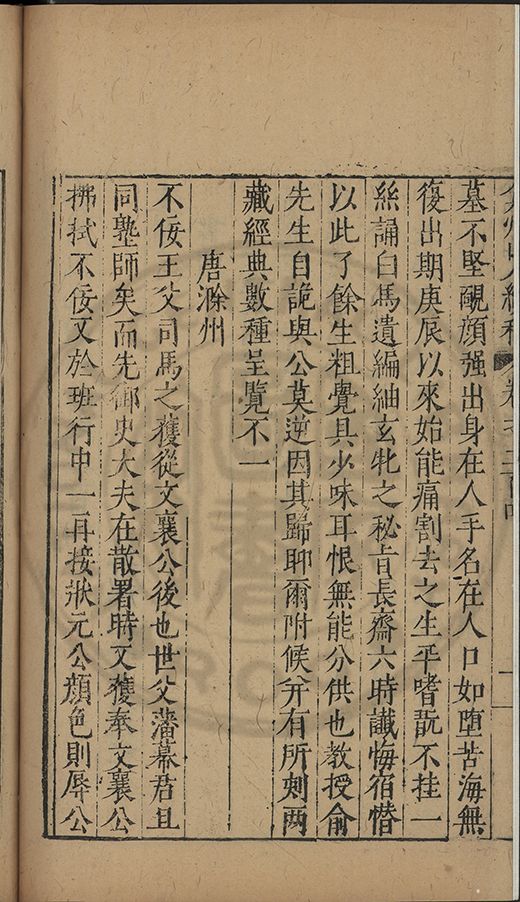 墓不堅靦顔强出身在人手名在人口如墮苦海無
復出期庚辰以來始能痛割去之生平嗜翫不挂一
絲誦白馬遺編紬玄牝之秘旨長齋六時讖悔宿愆
以此了餘生粗覺具少味耳恨無能分供也教授俞
先生自詭與公莫逆因其歸聊爾附候并有所刻兩
藏經典數種呈覽不一
唐滁州
不佞王父司馬之獲從文襄公後也世父藩幕君且
同塾師矣而先御史大夫在散署時又獲奉文襄公
拂拭不佞又於班行中一再接狀元公顔色則辱公